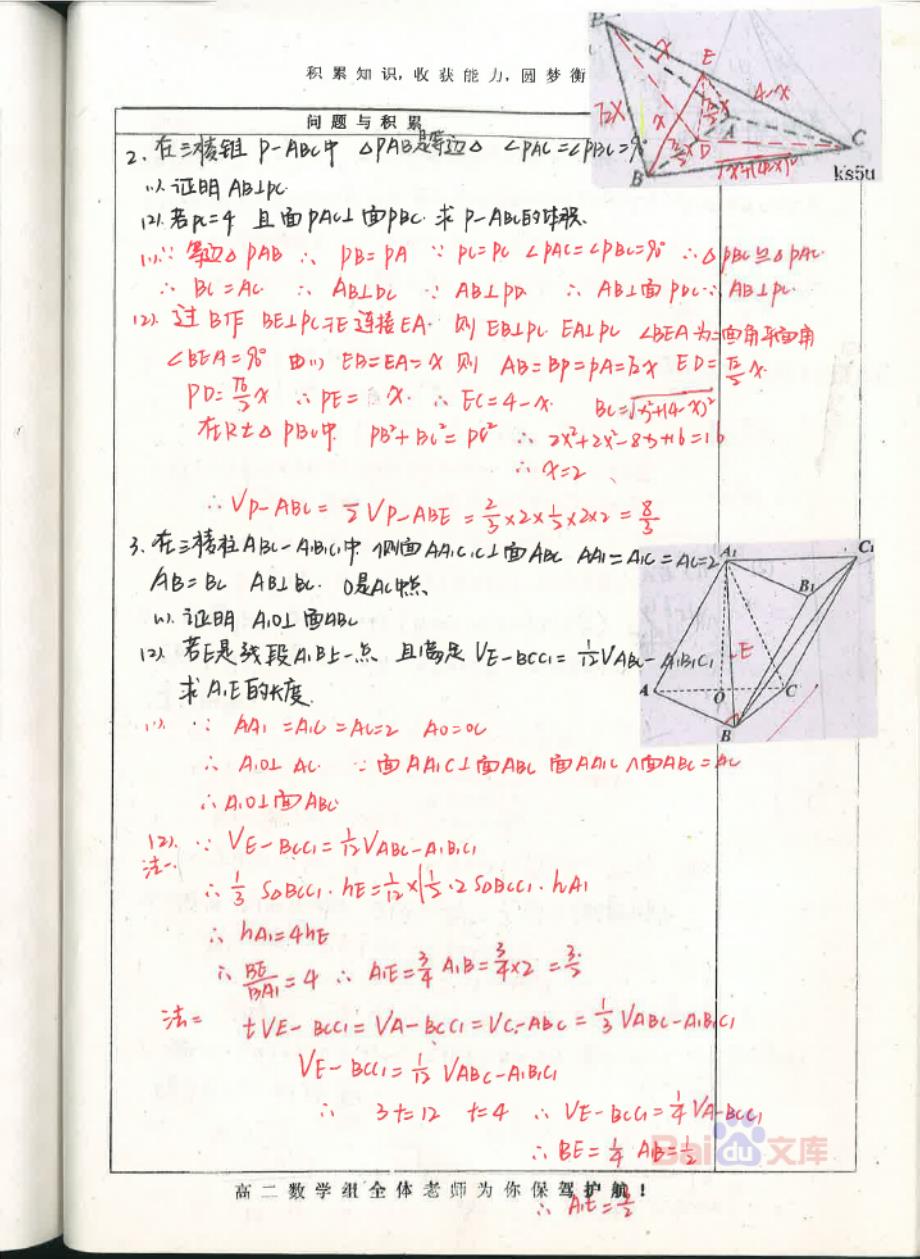 积累知识,收获能力,圆梦衡
问题与积累
2、在三棱锥 P-ABC中 △PAB是等边△ ∠PAC=∠PBC=90°
(1).证明 AB⊥PC.
(2).若PC=4 且面PAC⊥面PBC. 求 P-ABC的体积.
(1)∵ 等边△PAB ∴ PB=PA ∵ PC=PC ∠PAC=∠PBC=90° ∴△PBC≌△PAC.
∴ BC=AC. ∴ AB⊥DC ∵ AB⊥PD ∴ AB⊥面PDC ∴ AB⊥PC.
(2). 过B作 BE⊥PC于E 连接EA. 则 EB⊥PC EA⊥PC ∠BEA为二面角平面角
∠BEA=90° 由(1) EB=EA=x 则 AB=BP=PA=√2x ED=√2/2 x.
PD=√6/2 x ∴PE= x. ∴ EC=4-x. BC=√x²+(4-x)²
在Rt△PBC中 PB²+BC²=PC² ∴ 2x²+2x²-8x+16=16
∴ x=2
∴VP-ABC = 2VP-ABE = 2/3×2×1/2×2×2 = 8/3
P
E
A
B
D
C
x
4-x
√2x
√x²+(4-x)²
ks5u
3、在三棱柱ABC-A1B1C1中 侧面AA1C1C⊥面ABC AA1=A1C=AC=2
AB=BC AB⊥BC. O是AC中点、
(1). 证明 A1O⊥面ABC
(2). 若E是线段A1B上一点 且满足 VE-BCC1=1/12VABC-A1B1C1
求A1E的长度.
A1
C1
B1
E
A
O
C
B
(1). ∵ AA1=A1C=AC=2 AO=OC
∴ A1O⊥AC. ∵面AA1C⊥面ABC 面AA1C∩面ABC=AC
∴A1O⊥面ABC
(2). ∵ VE-BCC1=1/12VABC-A1B1C1
法一、
∴ 1/3 S△BCC1·hE=1/12×1/2·2S△BCC1·hA1
∴ hA1=4hE
∴ BE/BA1=4 ∴ A1E=3/4 A1B=3/4×2=3/2
法二 tVE-BCC1=VA-BCC1=VC1-ABC=1/3VABC-A1B1C1
VE-BCC1=1/12 VABC-A1B1C1
∴ 3t=12 t=4 ∴ VE-BCC1=1/4VA-BCC1
∴BE=1/4 AB=1/2
Baidu文库
高二数学组全体老师为你保驾护航!
∴ A1E=3/2